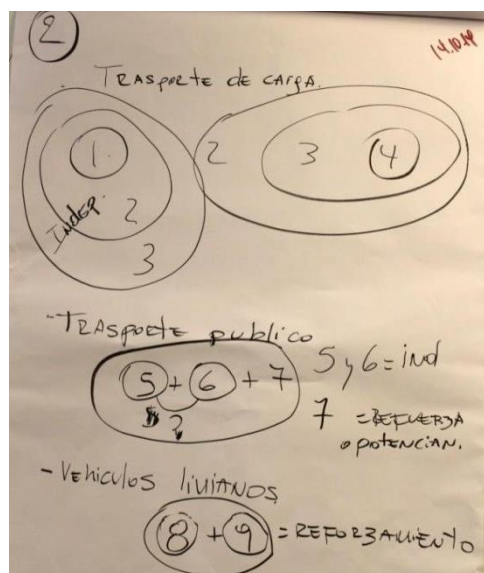 2
14.10.19
TRASPORTE de CARGA.
1 2 3 4
Indep. 2
3
- TRASPORTE publico
5 + 6 + 7 5 y 6 = ind
7 = REFUERZA
o potencian.
?
- Vehiculos liviaNos
8 + 9 = REFORZAMIENTO